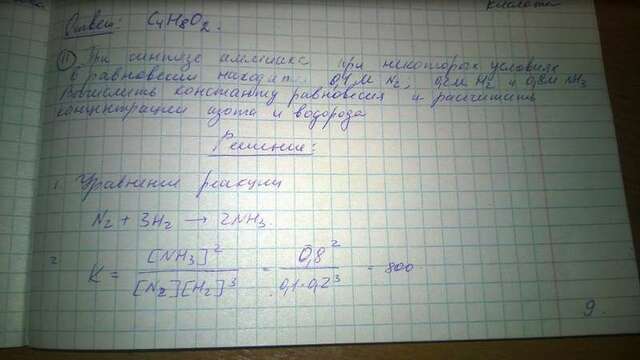 кислота
Ответ: C4H8O2.
11 При синтезе аммиака при некоторых условиях
в равновесии находят 0,1М N2, 0,2М H2 и 0,8М NH3
Вычислить константу равновесия и рассчитать
концентрации азота и водорода
Решение:
1. Уравнение реакции
N2 + 3H2 → 2NH3.
2 K = [NH3]² / [N2][H2]³ = 0,8² / 0,1·0,2³ = 800.
9.